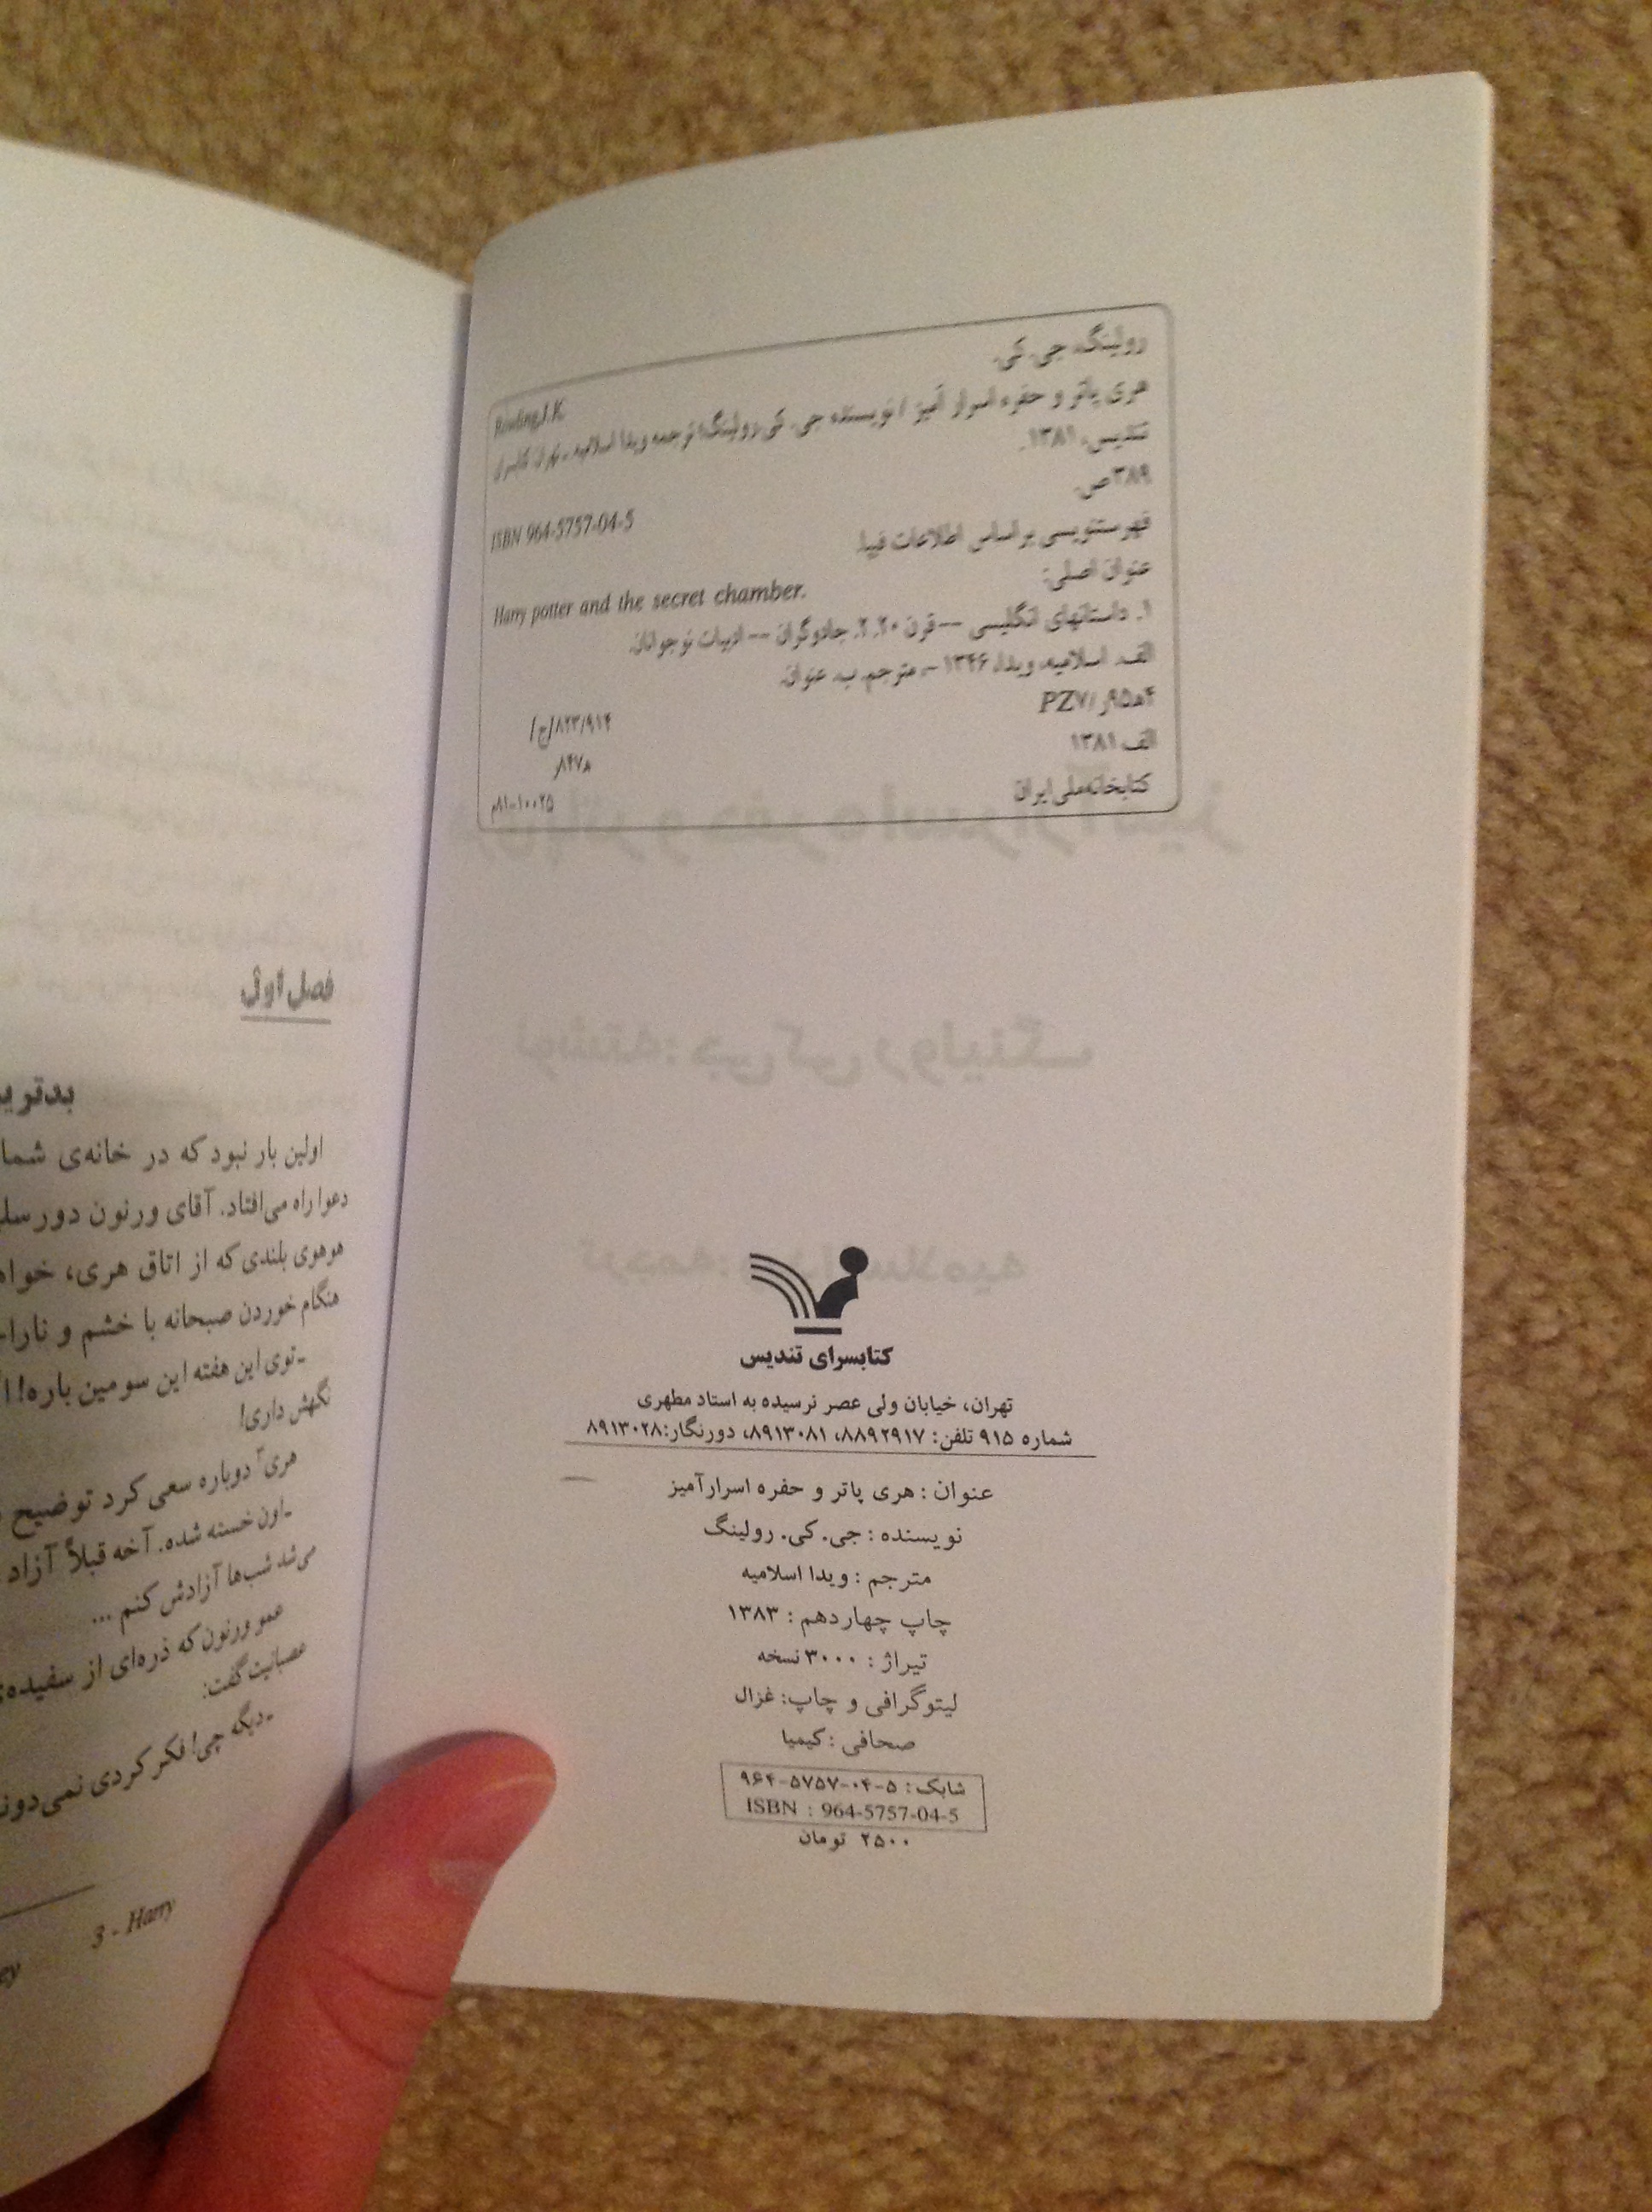 رولینگ، جی. کی.
Rowling,J.K.
هری پاتر و حفره اسرار آمیز / نویسنده جی. کی. رولینگ؛ ترجمه ویدا اسلامیه - تهران: کتابسرای
تندیس، ۱۳۸۱.
۳۸۹ص.
ISBN 964-5757-04-5
فهرستنویسی براساس اطلاعات فیپا.
عنوان اصلی:
Harry potter and the secret chamber.
۱. داستانهای انگلیسی -- قرن ۲۰. ۲. جادوگران -- ادبیات نوجوانان.
الف. اسلامیه، ویدا، ۱۳۴۶ -، مترجم. ب. عنوان.
۴ه۹۵ر/PZ۷
۸۲۳/۹۱۴[ج]
الف ۱۳۸۱
ه۸۴۷ر
کتابخانه‌ملی‌ایران
۸۱-۱۰۰۲۵م
کتابسرای تندیس
تهران، خیابان ولی عصر نرسیده به استاد مطهری
شماره ۹۱۵ تلفن: ۸۸۹۲۹۱۷، ۸۹۱۳۰۸۱، دورنگار:۸۹۱۳۰۲۸
عنوان : هری پاتر و حفره اسرارآمیز
نویسنده : جی. کی. رولینگ
مترجم : ویدا اسلامیه
چاپ چهاردهم : ۱۳۸۳
تیراژ : ۳۰۰۰ نسخه
لیتوگرافی و چاپ: غزال
صحافی : کیمیا
شابک : ۵-۰۴-۵۷۵۷-۹۶۴
ISBN : 964-5757-04-5
۲۵۰۰ تومان
فصل اول
اولین بار نبود که در خانه‌ی
دعوا راه می‌افتاد. آقای ورنون
هوهوی بلندی که از اتاق هری،
هنگام خوردن صبحانه با خشم و
-توی این هفته این سومین باره!
نگهش داری!
هری دوباره سعی کرد توضیح
-اون خسته شده. آخه قبلاً آزاد
می‌شد شب‌ها آزادش کنم ...
عمو ورنون که ذره‌ای از
عصبانیت گفت:
-دیگه چی! فکر کردی
3 - Harry